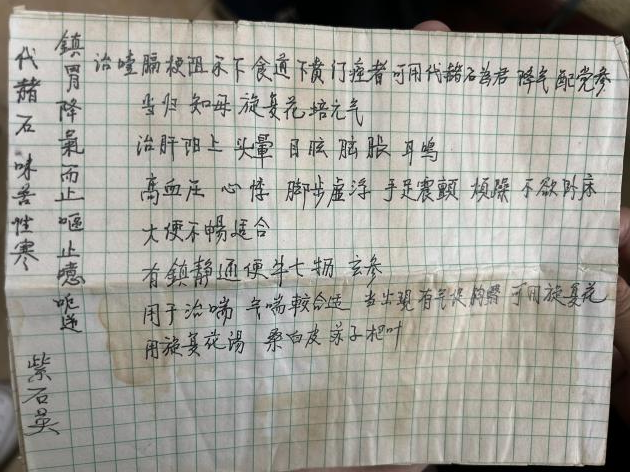 代赭石 味苦性寒
鎮胃降氣而止嘔止噫呃逆
治噎膈梗阻永下食道下賁门症者可用代赭石為君 降气 配党参
当归 知母 旋复花 培元气
治肝阳上 头暈 目眩 脑胀 耳鸣
高血压 心悸 脚步虚浮 手足震顫 煩躁 不欲卧床
大便不暢适合
有鎮静通便牛七 玄参
用于治喘 气喘較合适 当出現有气促 可用旋复花
用旋复花湯 桑白皮 苏子 杷叶
紫石英